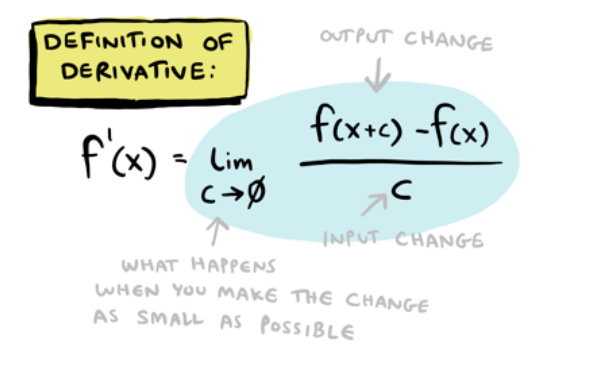 DEFINITION OF
DERIVATIVE:
OUTPUT CHANGE
f'(x) = lim f(x+c) - f(x)
c→∅ c
INPUT CHANGE
WHAT HAPPENS
WHEN YOU MAKE THE CHANGE
AS SMALL AS POSSIBLE